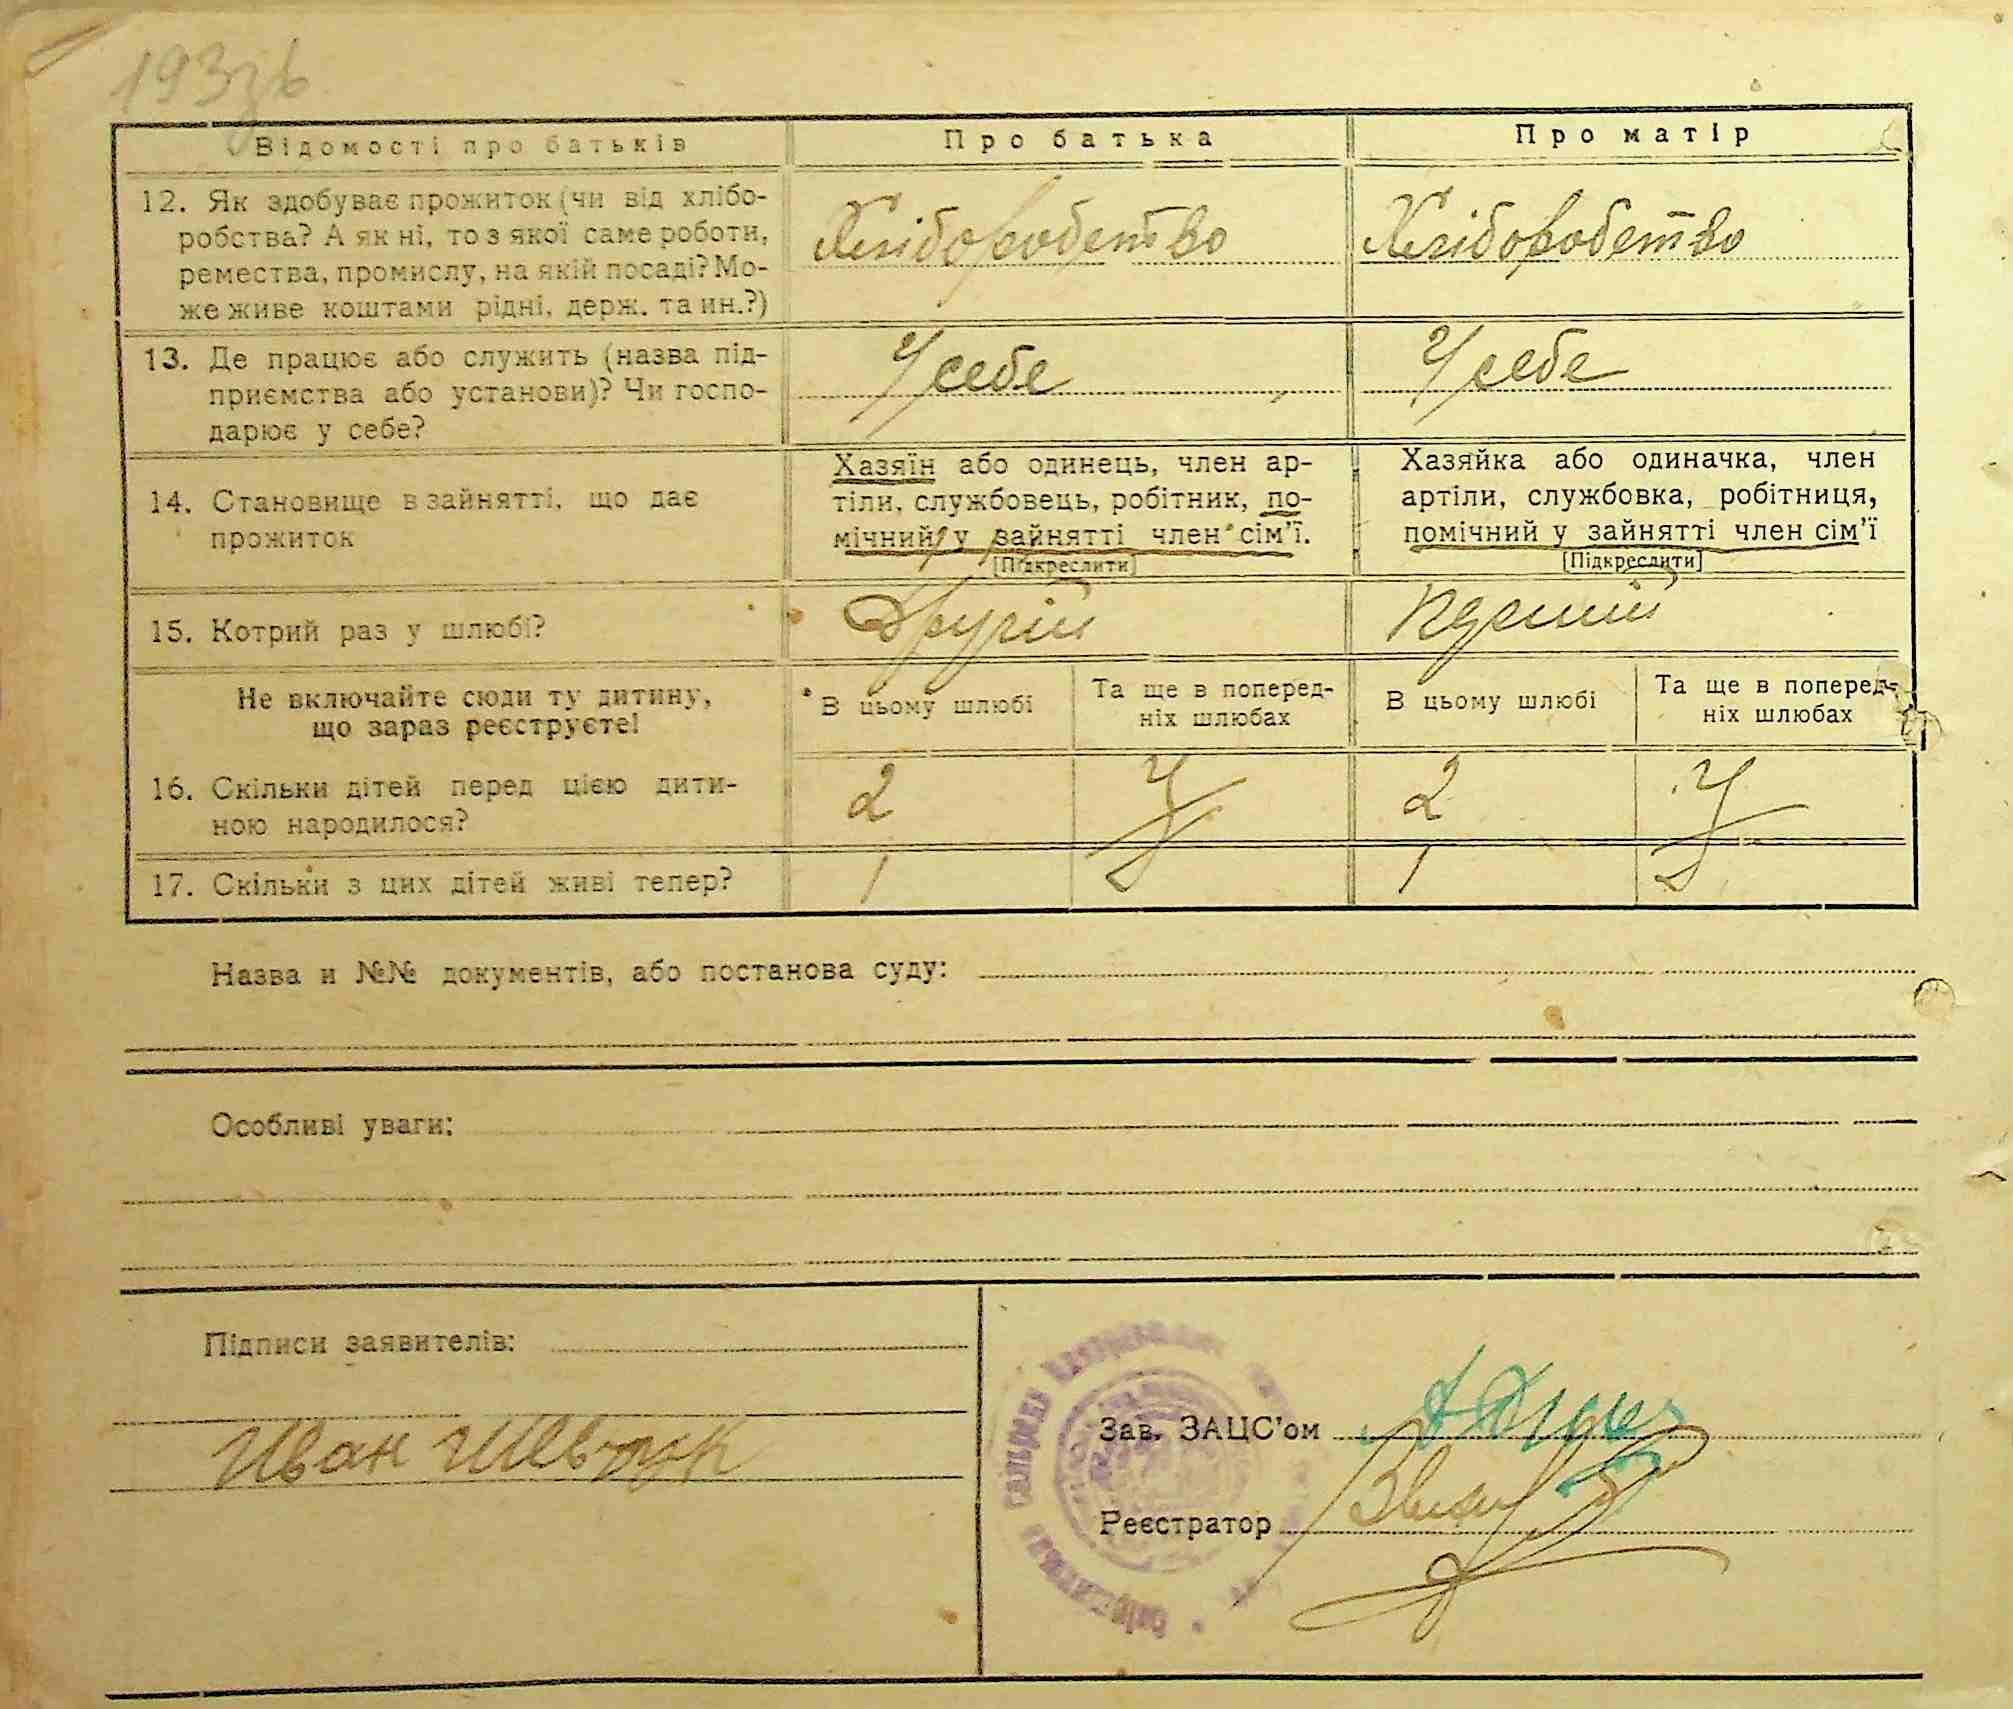 193зв
Відомості про батьків
Про батька
Про матір
12. Як здобуває прожиток (чи від хлібо-
робства? А як ні, то з якої саме роботи,
ремества, промислу, на якій посаді? Мо-
же живе коштами рідні, держ. та ин.?)
Хліборобство
Хліборобство
13. Де працює або служить (назва під-
приємства або установи)? Чи госпо-
дарює у себе?
У себе
У себе
14. Становище в зайнятті, що дає
прожиток
Хазяїн або одинець, член ар-
тіли, службовець, робітник, по-
мічний у зайнятті член сім'ї.
[Підкреслити]
Хазяйка або одиначка, член
артіли, службовка, робітниця,
помічний у зайнятті член сім'ї
[Підкреслити]
15. Котрий раз у шлюбі?
Другій
Не включайте сюди ту дитину,
що зараз реєструєте!
В цьому шлюбі
Та ще в поперед-
ніх шлюбах
В цьому шлюбі
Та ще в поперед-
ніх шлюбах
16. Скільки дітей перед цією дити-
ною народилося?
2
2
17. Скільки з цих дітей живі тепер?
1
1
Назва и №№ документів, або постанова суду:
Особливі уваги:
Підписи заявителів:
Иван Шевчук
Зав. ЗАЦС'ом
Реєстратор